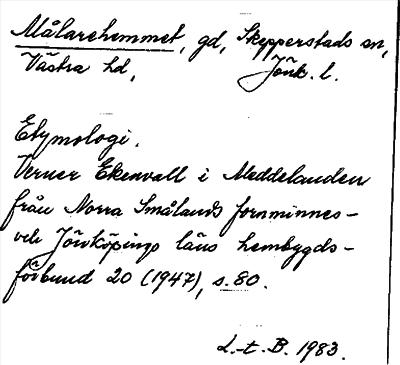 Målarehemmet, gd, Skepperstads sn,
Västra hd, Jönk. l.
Etymologi.
Verner Ekenvall i Meddelanden
från Norra Smålands fornminnes-
och Jönköpings läns hembygds-
förbund 20 (1947), s. 80.
L.-t. B. 1983.